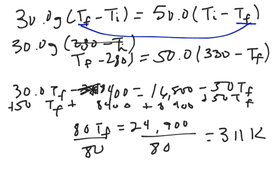 30.0g (Tf - Ti) = 50.0 (Ti - Tf)
30.0g (Tf - 280) = 50.0 (330 - Tf)
30.0 Tf - 8400 = 16,500 - 50 Tf
+50 Tf + 8400 + 8400 + 50 Tf
80 Tf = 24,900 = 311 K
80 80